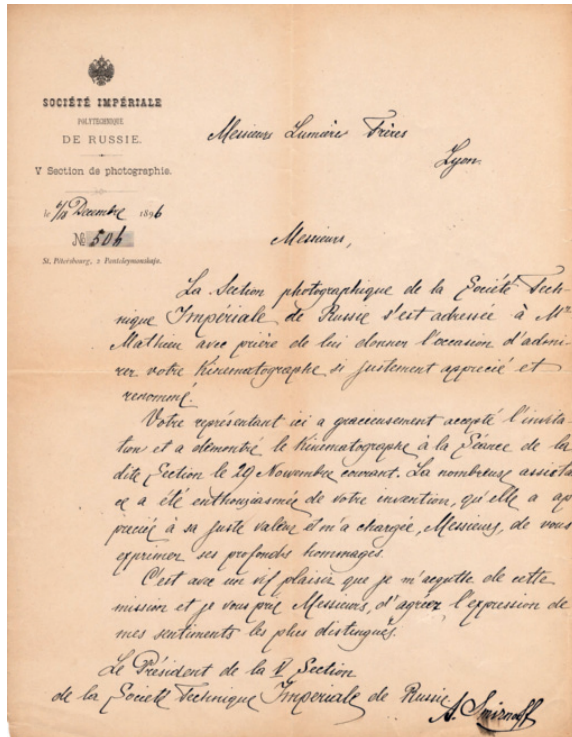 SOCIÉTÉ IMPÉRIALE
POLYTECHNIQUE
DE RUSSIE.
V Section de photographie.
le Decembre 1896
№ 504
St. Pétersbourg, 2 Panteleymonskaja.
Messieurs Lumière Frères
Lyon.
Messieurs,
La Section photographique de la Société Tech-
nique Impériale de Russie s'est adressée à Mr
Mathieu avec prière de lui donner l'occasion d'admi-
rer votre Kinematographe si justement apprecié et
renommé.
Votre représentant ici a gracieusement accepté l'invita-
tion et a démontré le Kinematographe à la Séance de la
dite Section le 29 Novembre courant. La nombreuse assista
ce a été enthousiasmée de votre invention, qu'elle a ap
precié à sa juste valeur et m'a chargée, Messieurs, de vous
exprimer ses profonds hommages.
C'est avec un vif plaisir que je m'aquitte de cette
mission et je vous prie Messieurs, d'agréer l'expression de
mes sentiments les plus distingués.
Le Président de la V Section
de la Societé Technique Imperiale de Russie
A. Smirnoff